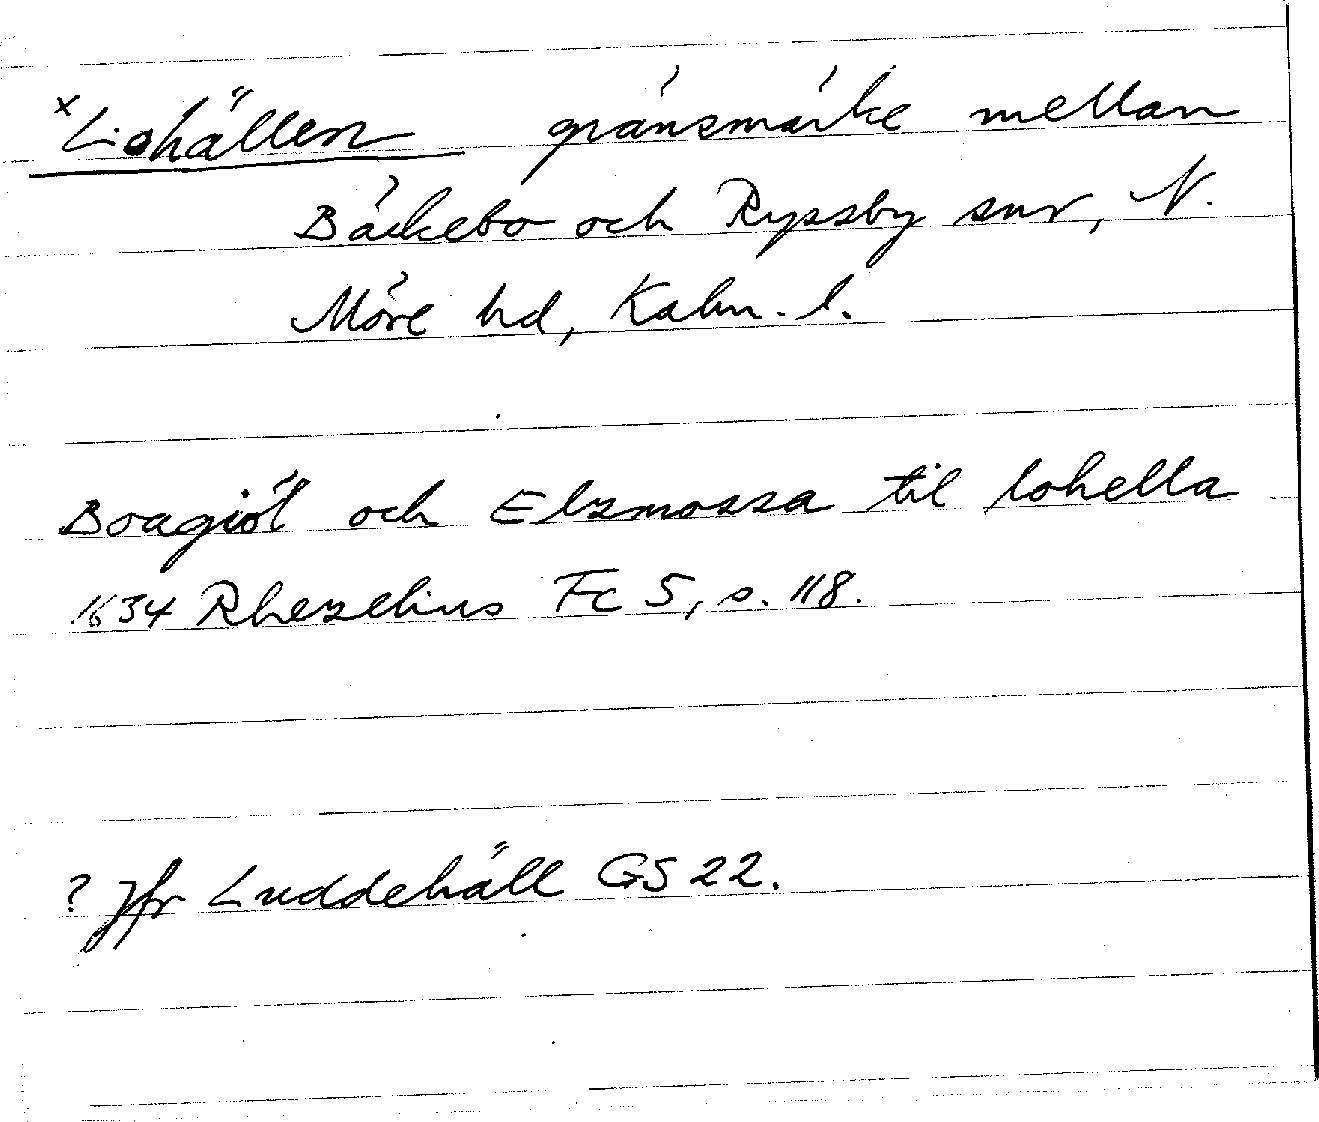 x Lohällen gränsmärke mellan
Bäckebo och Ryssby snr, N.
Möre hd, Kalm. l.
Boagiöl och Elsmossa til lohella
1634 Rhezelius Fc 5, s. 118.
? Jfr Luddehäll GS 22.